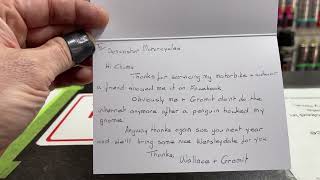 To Demonster Motorcycles
Hi Chums
Thanks for servicing my motorbike + sidecar
a friend showed me it on Facebook
Obviously me + Gromit don't do the
internet anymore after a penguin hacked my
gnome.
Anyway thanks again see you next year
and we'll bring some nice Wensleydale for you
Thanks,
Wallace + Gromit